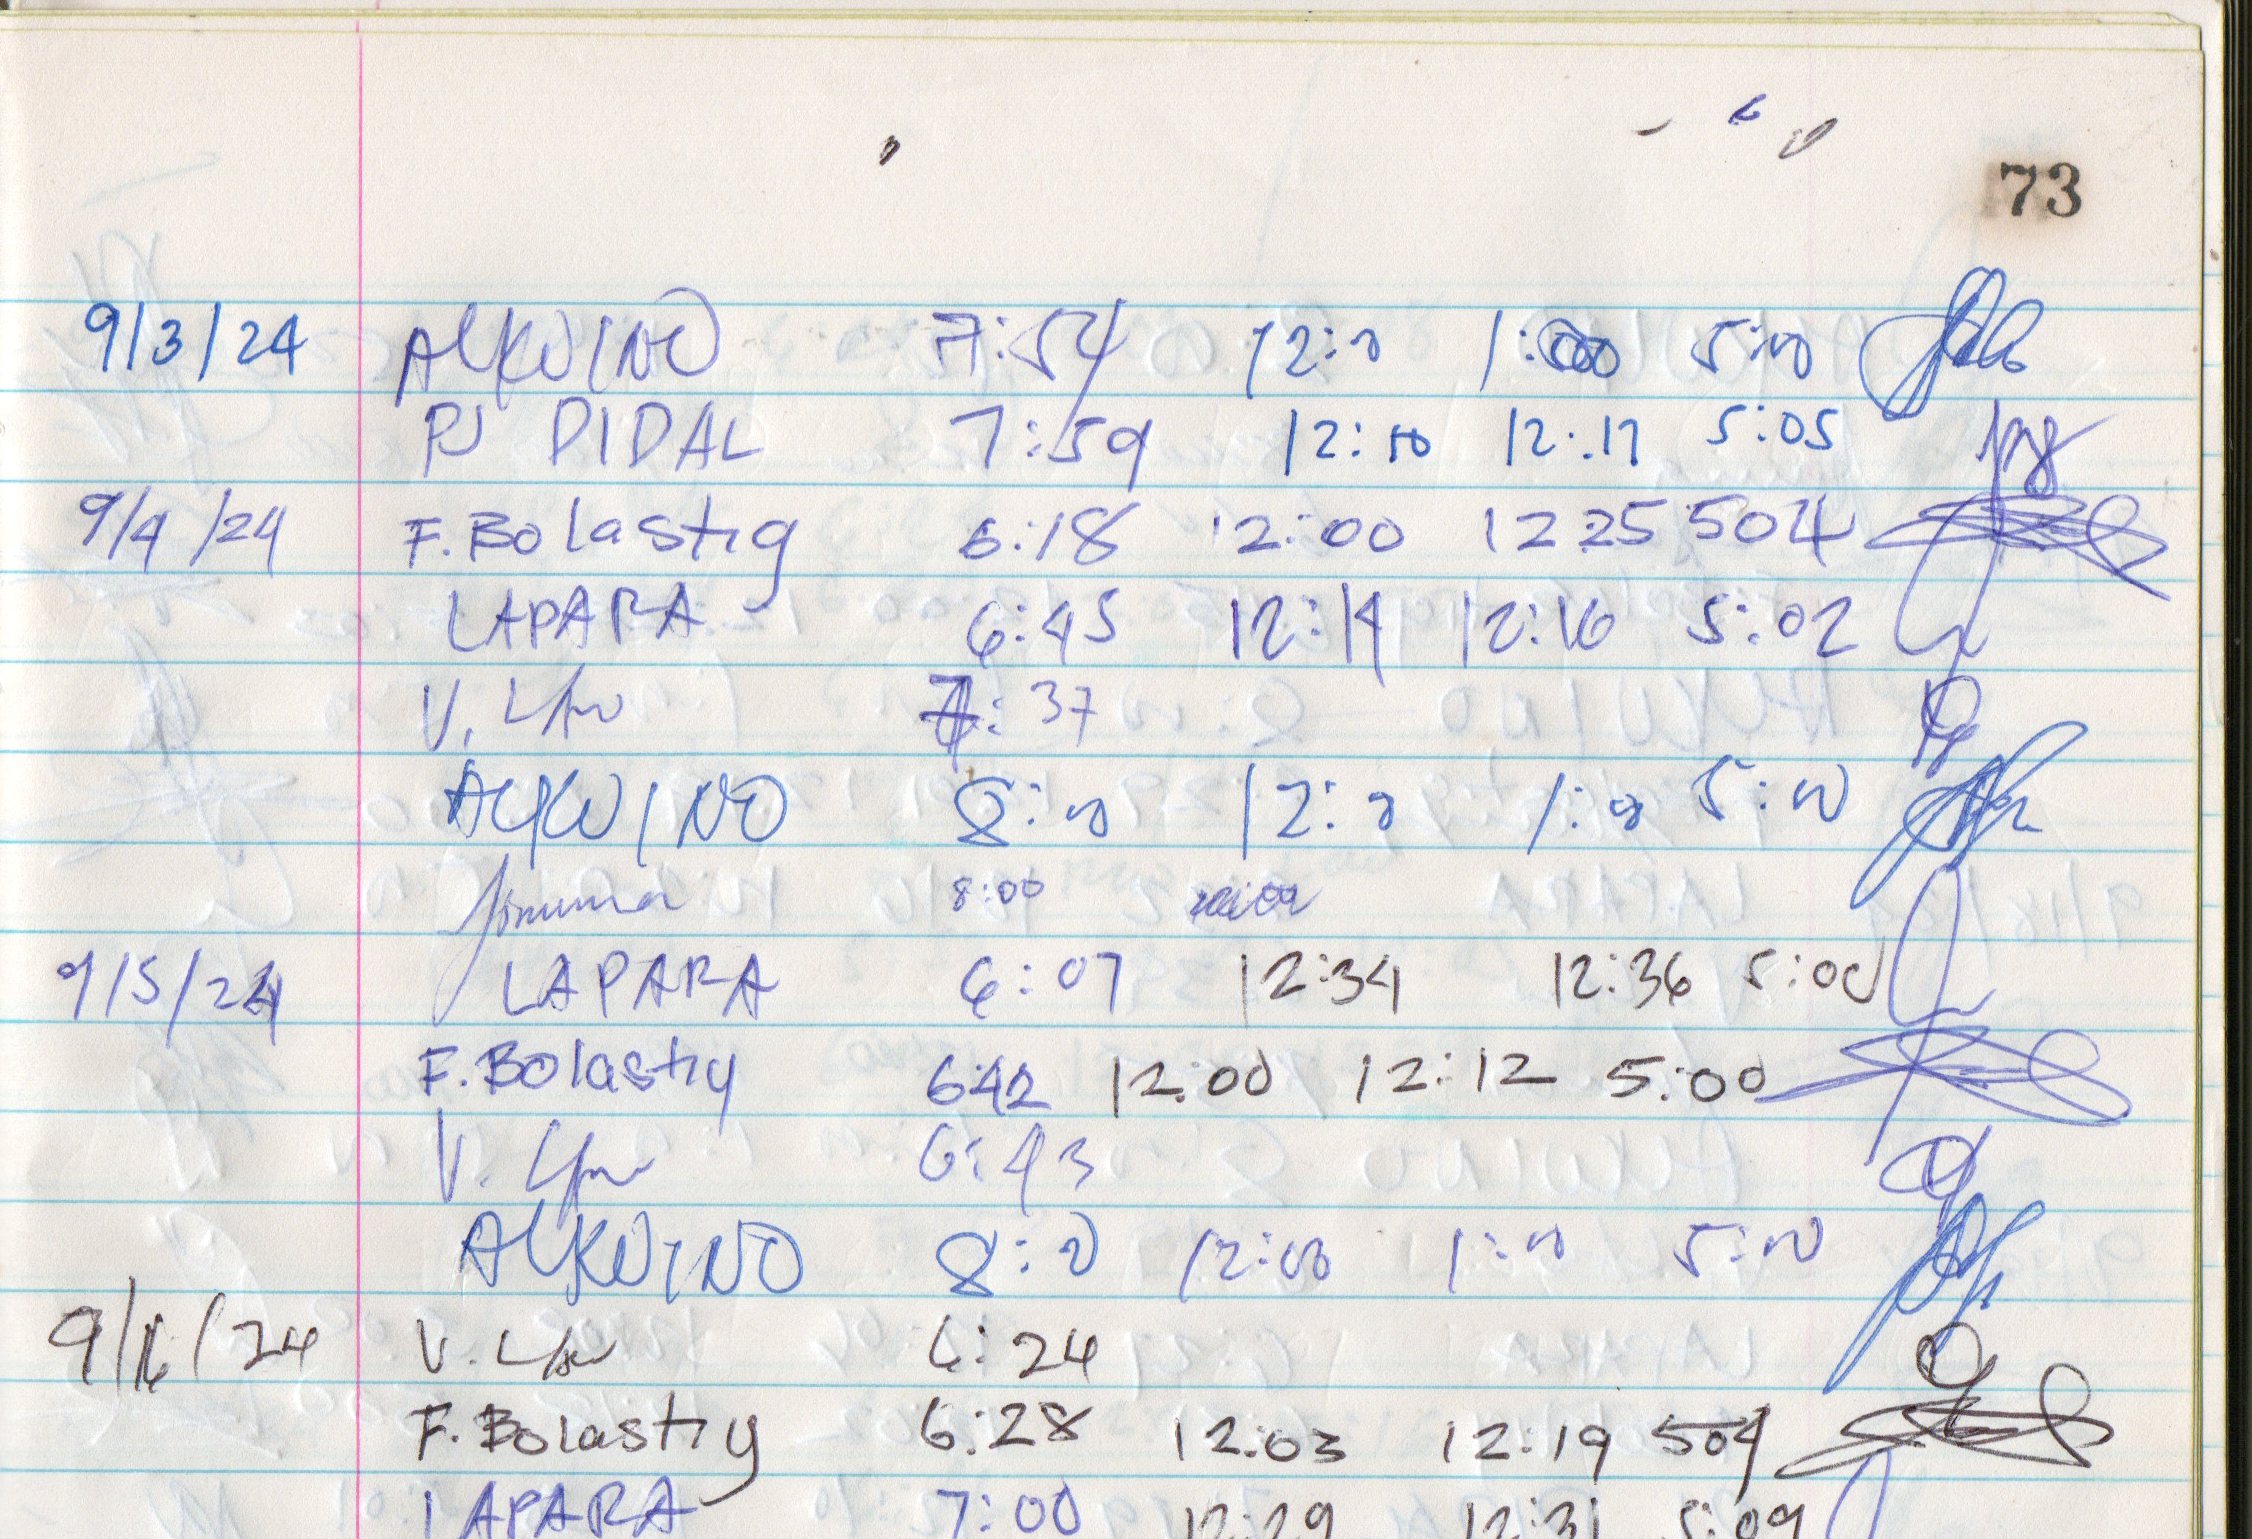 73
9/3/24 ALKUINO 7:54 12:00 1:00 5:00
PJ DIDAL 7:59 12:10 12:17 5:05
9/4/24 F. Bolastig 6:18 12:00 1225 504
LAPARA 6:45 12:14 12:16 5:02
V. 7:37
ALKUINO 8:00 12:00 1:00 5:00
8:00
9/5/24 LAPARA 6:07 12:34 12:36 5:00
F. Bolastig 642 12:00 12:12 5:00
V. 6:43
ALKUINO 8:00 12:00 1:00 5:00
9/6/24 V. 6:24
F. Bolastig 6:28 12:03 12:19 504
LAPARA 7:00 12:29 12:31 5:09